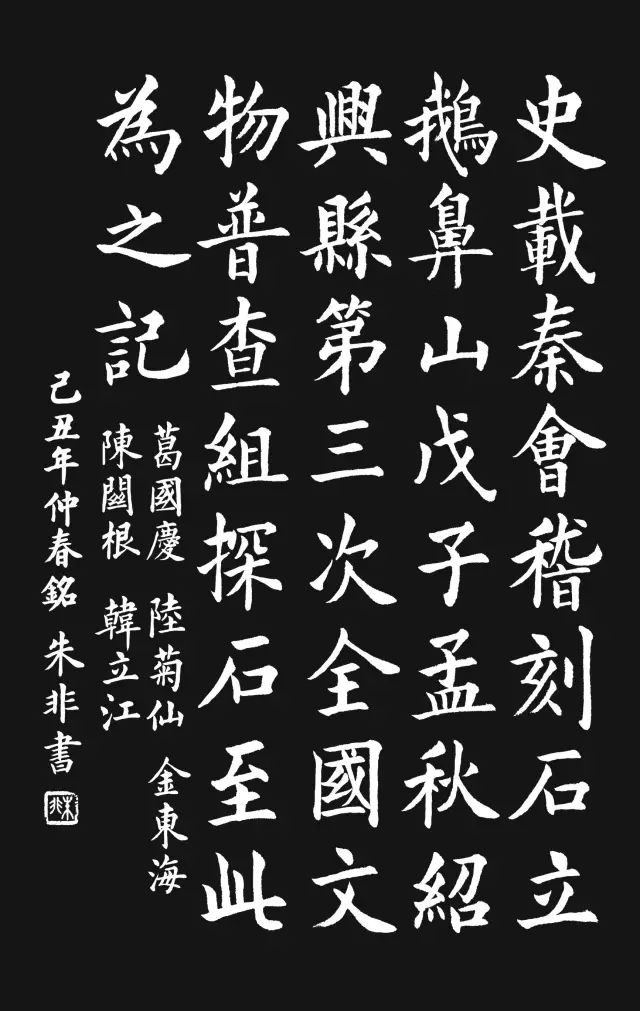 史載秦會稽刻石立
鵝鼻山戊子孟秋紹
興縣第三次全國文
物普查組探石至此
為之記
葛國慶 陸菊仙 金東海
陳關根 韓立江
己丑年仲春銘 朱非書
朱非